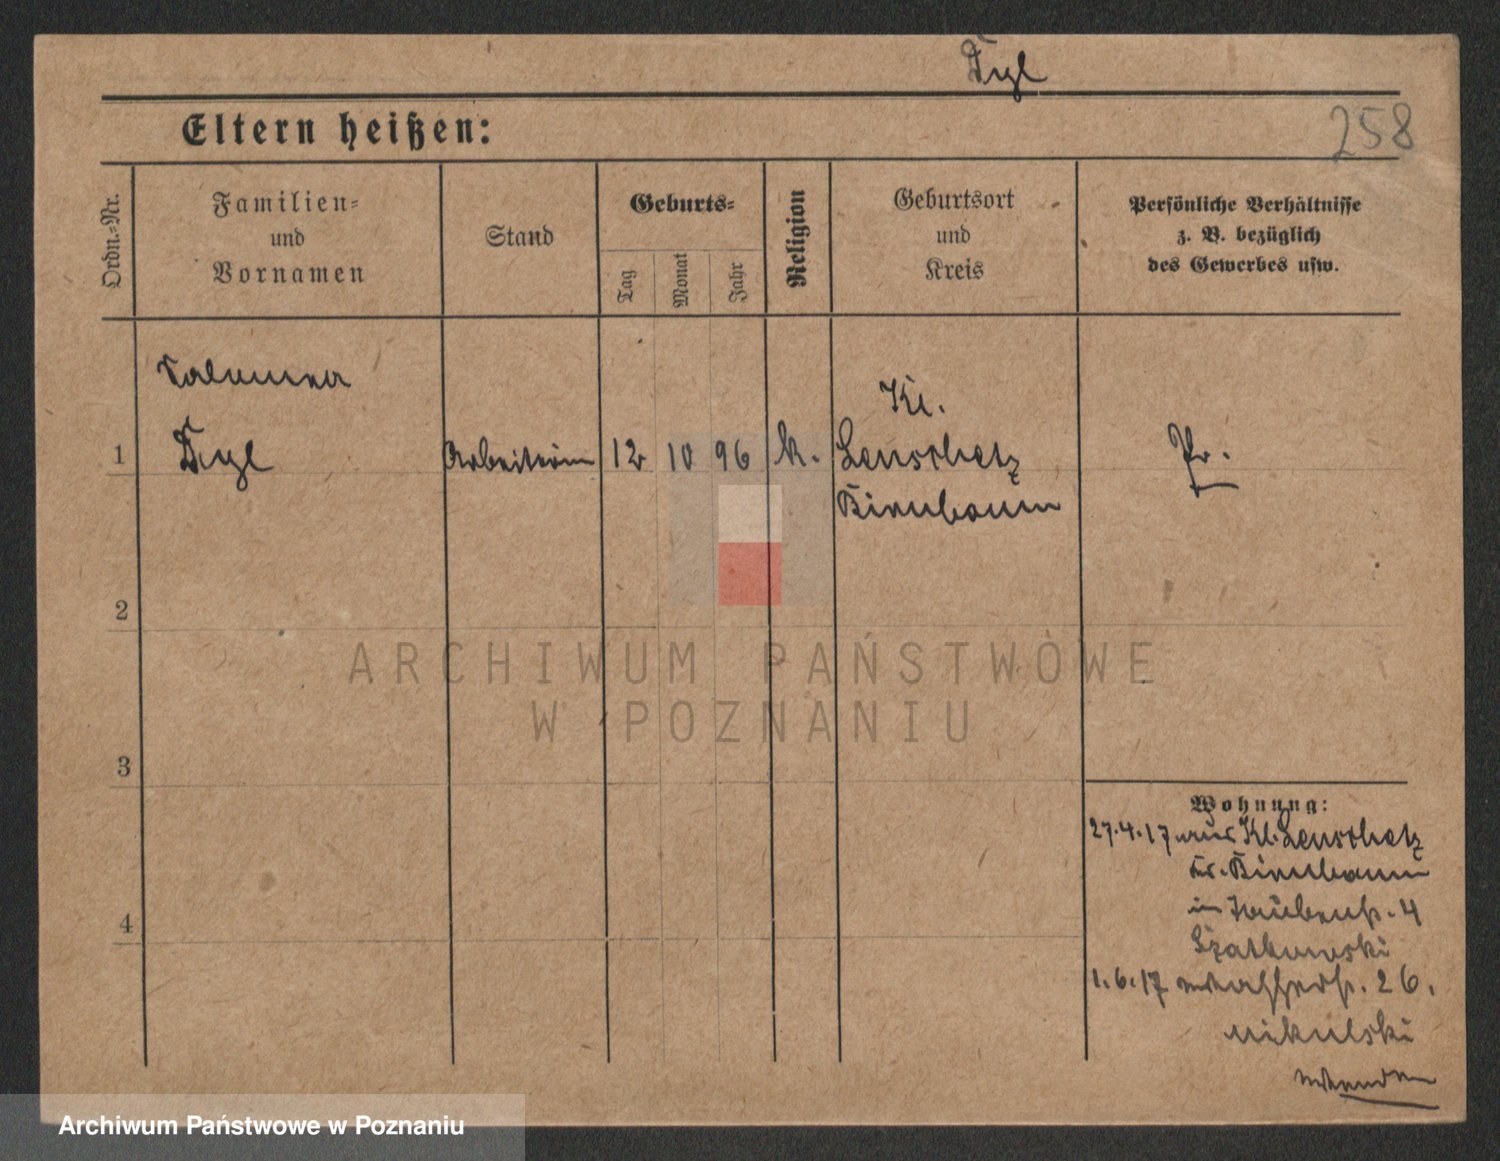 Dyl
Eltern heißen:
258
Ordn.-Nr.
Familien-
und
Vornamen
Stand
Geburts-
Tag
Monat
Jahr
Religion
Geburtsort
und
Kreis
Persönliche Verhältnisse
z. B. bezüglich
des Gewerbes usw.
1
Dyl
Arbeiterin
12
10
96
k.
Kl.
Lenschetz
Birnbaum
Pr.
2
3
4
Wohnung:
27.4.17 aus Kl. Lenschetz
Kr. Birnbaum
in Taubenstr. 4
Szatkowski
1.6.17 Wasserstr. 26.
Mikulski
wenden
ARCHIWUM PAŃSTWOWE
W POZNANIU
Archiwum Państwowe w Poznaniu